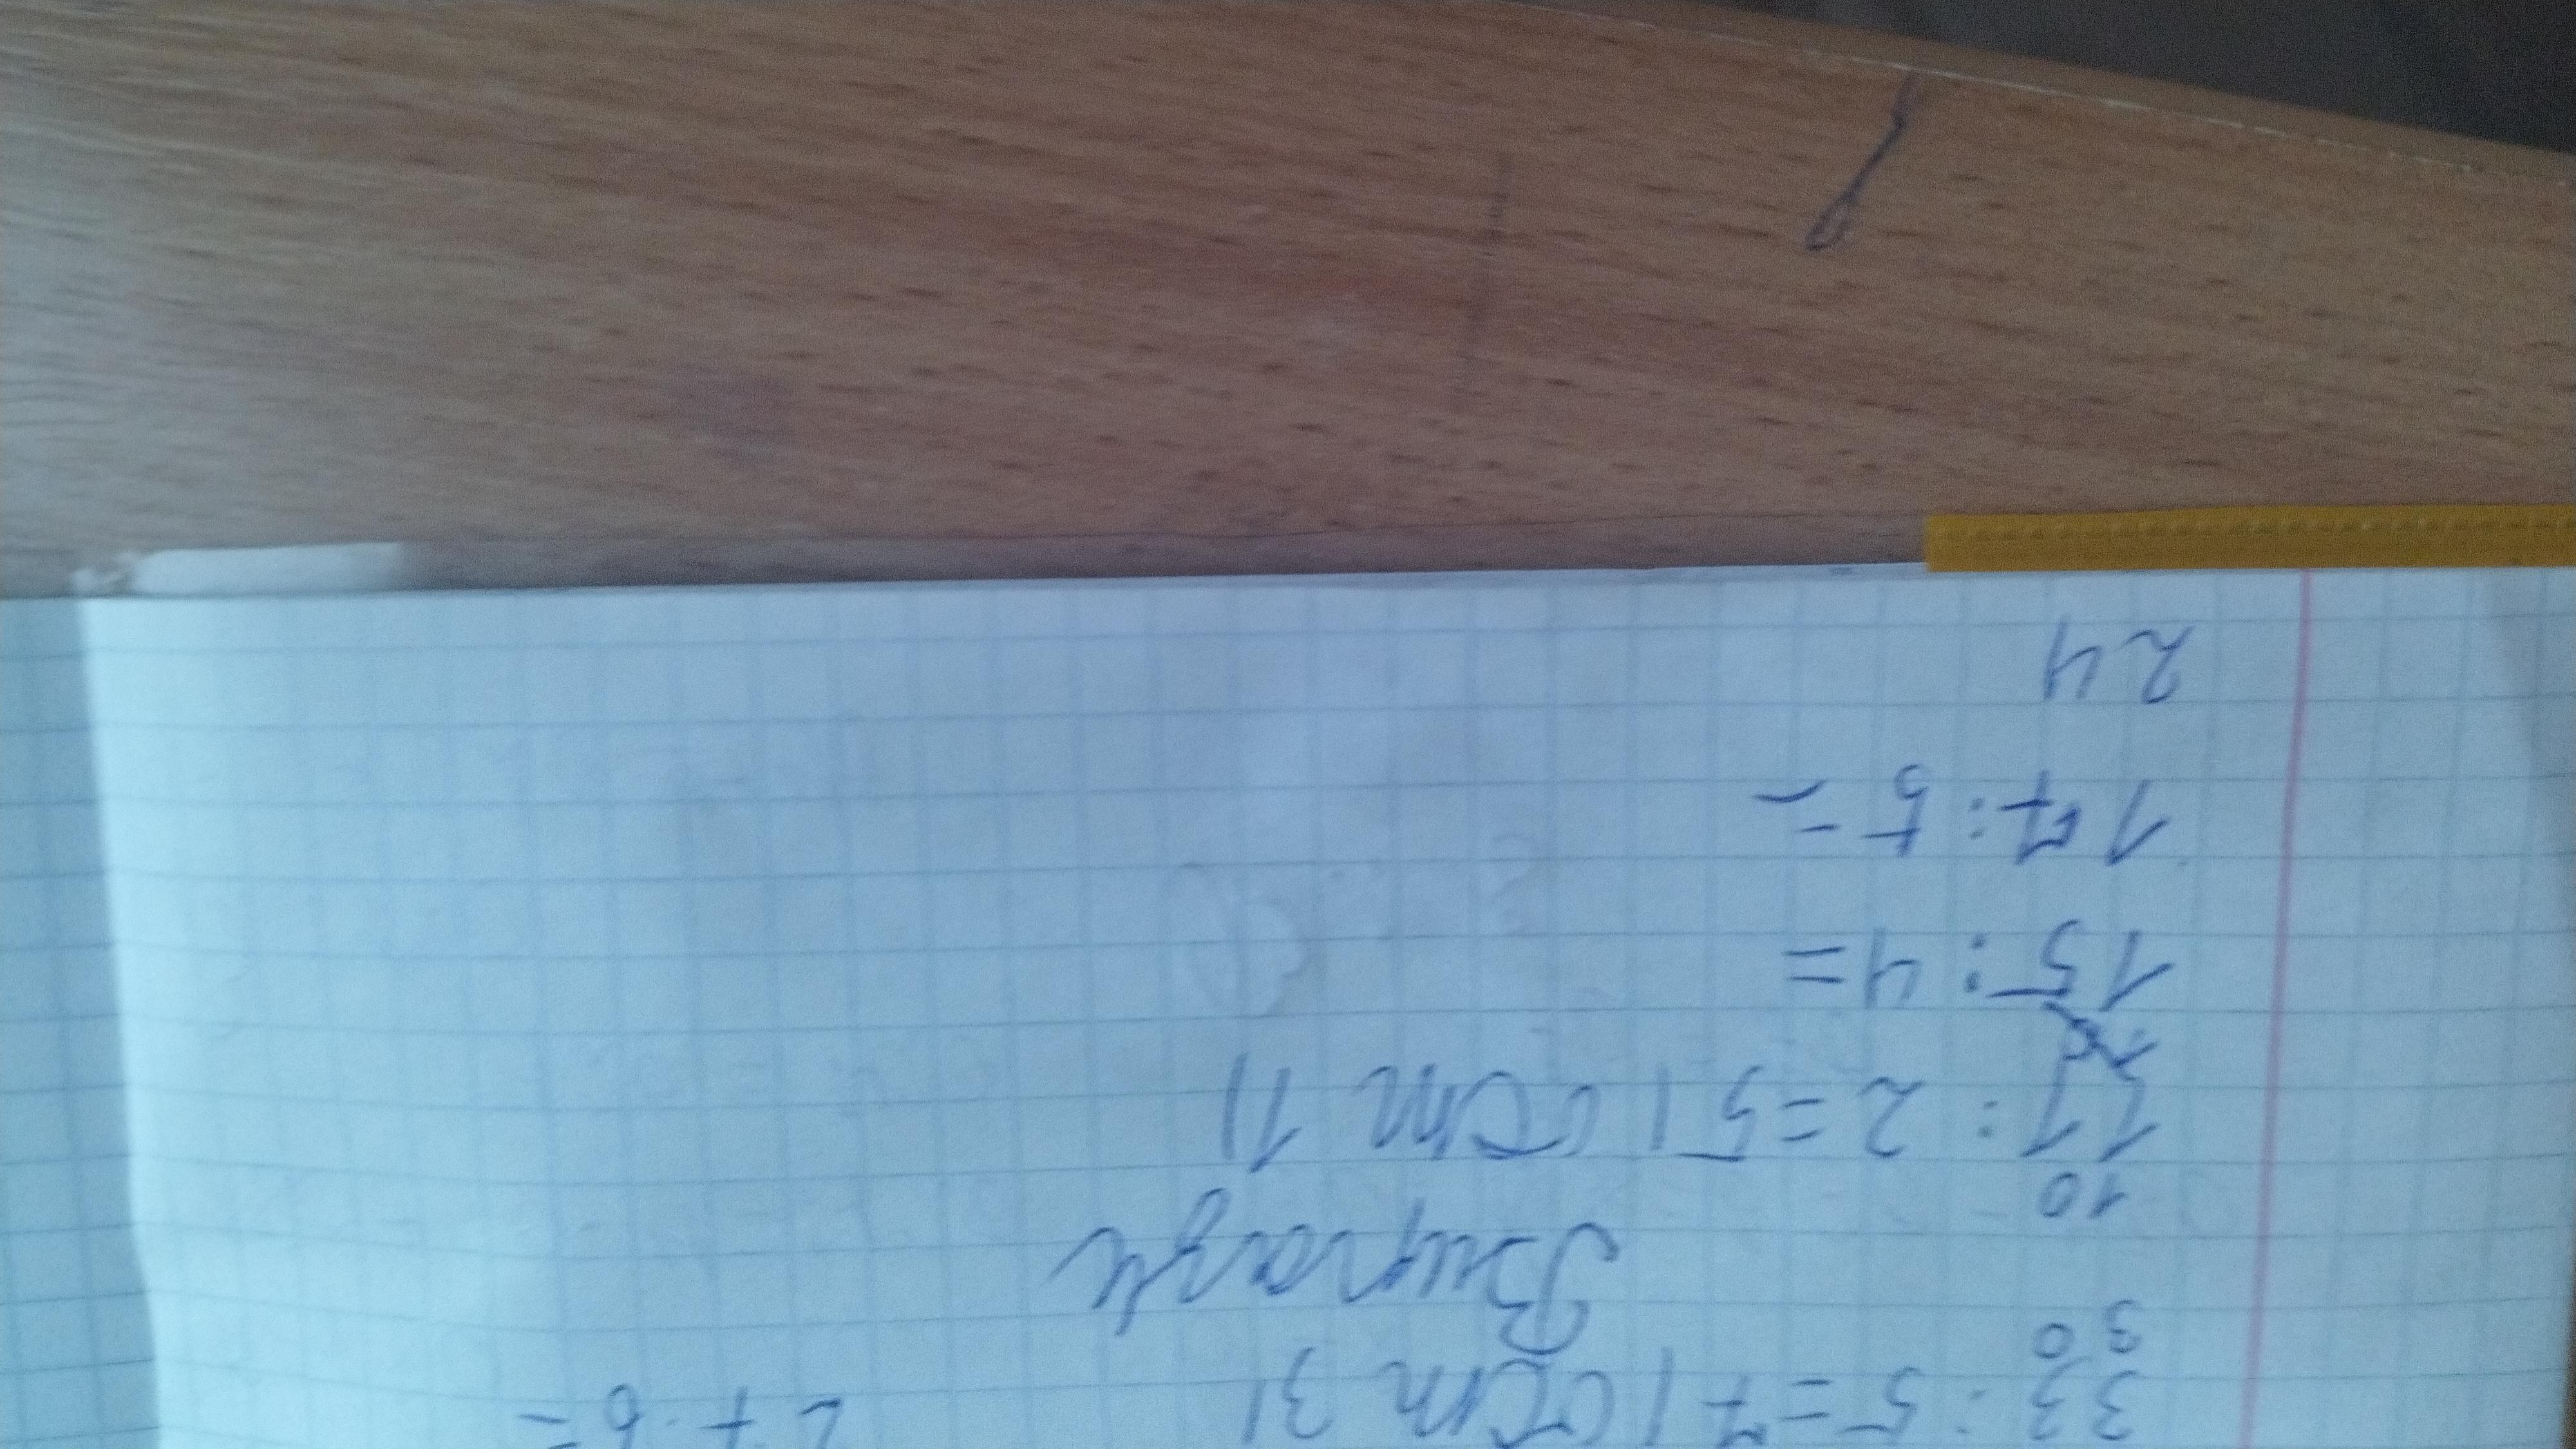 33 : 5 = 7 (ост 3) 27 : 6 =
30
Вирази
10
11 : 2 = 5 (ост 1)
15 : 4 =
17 : 5 =
24